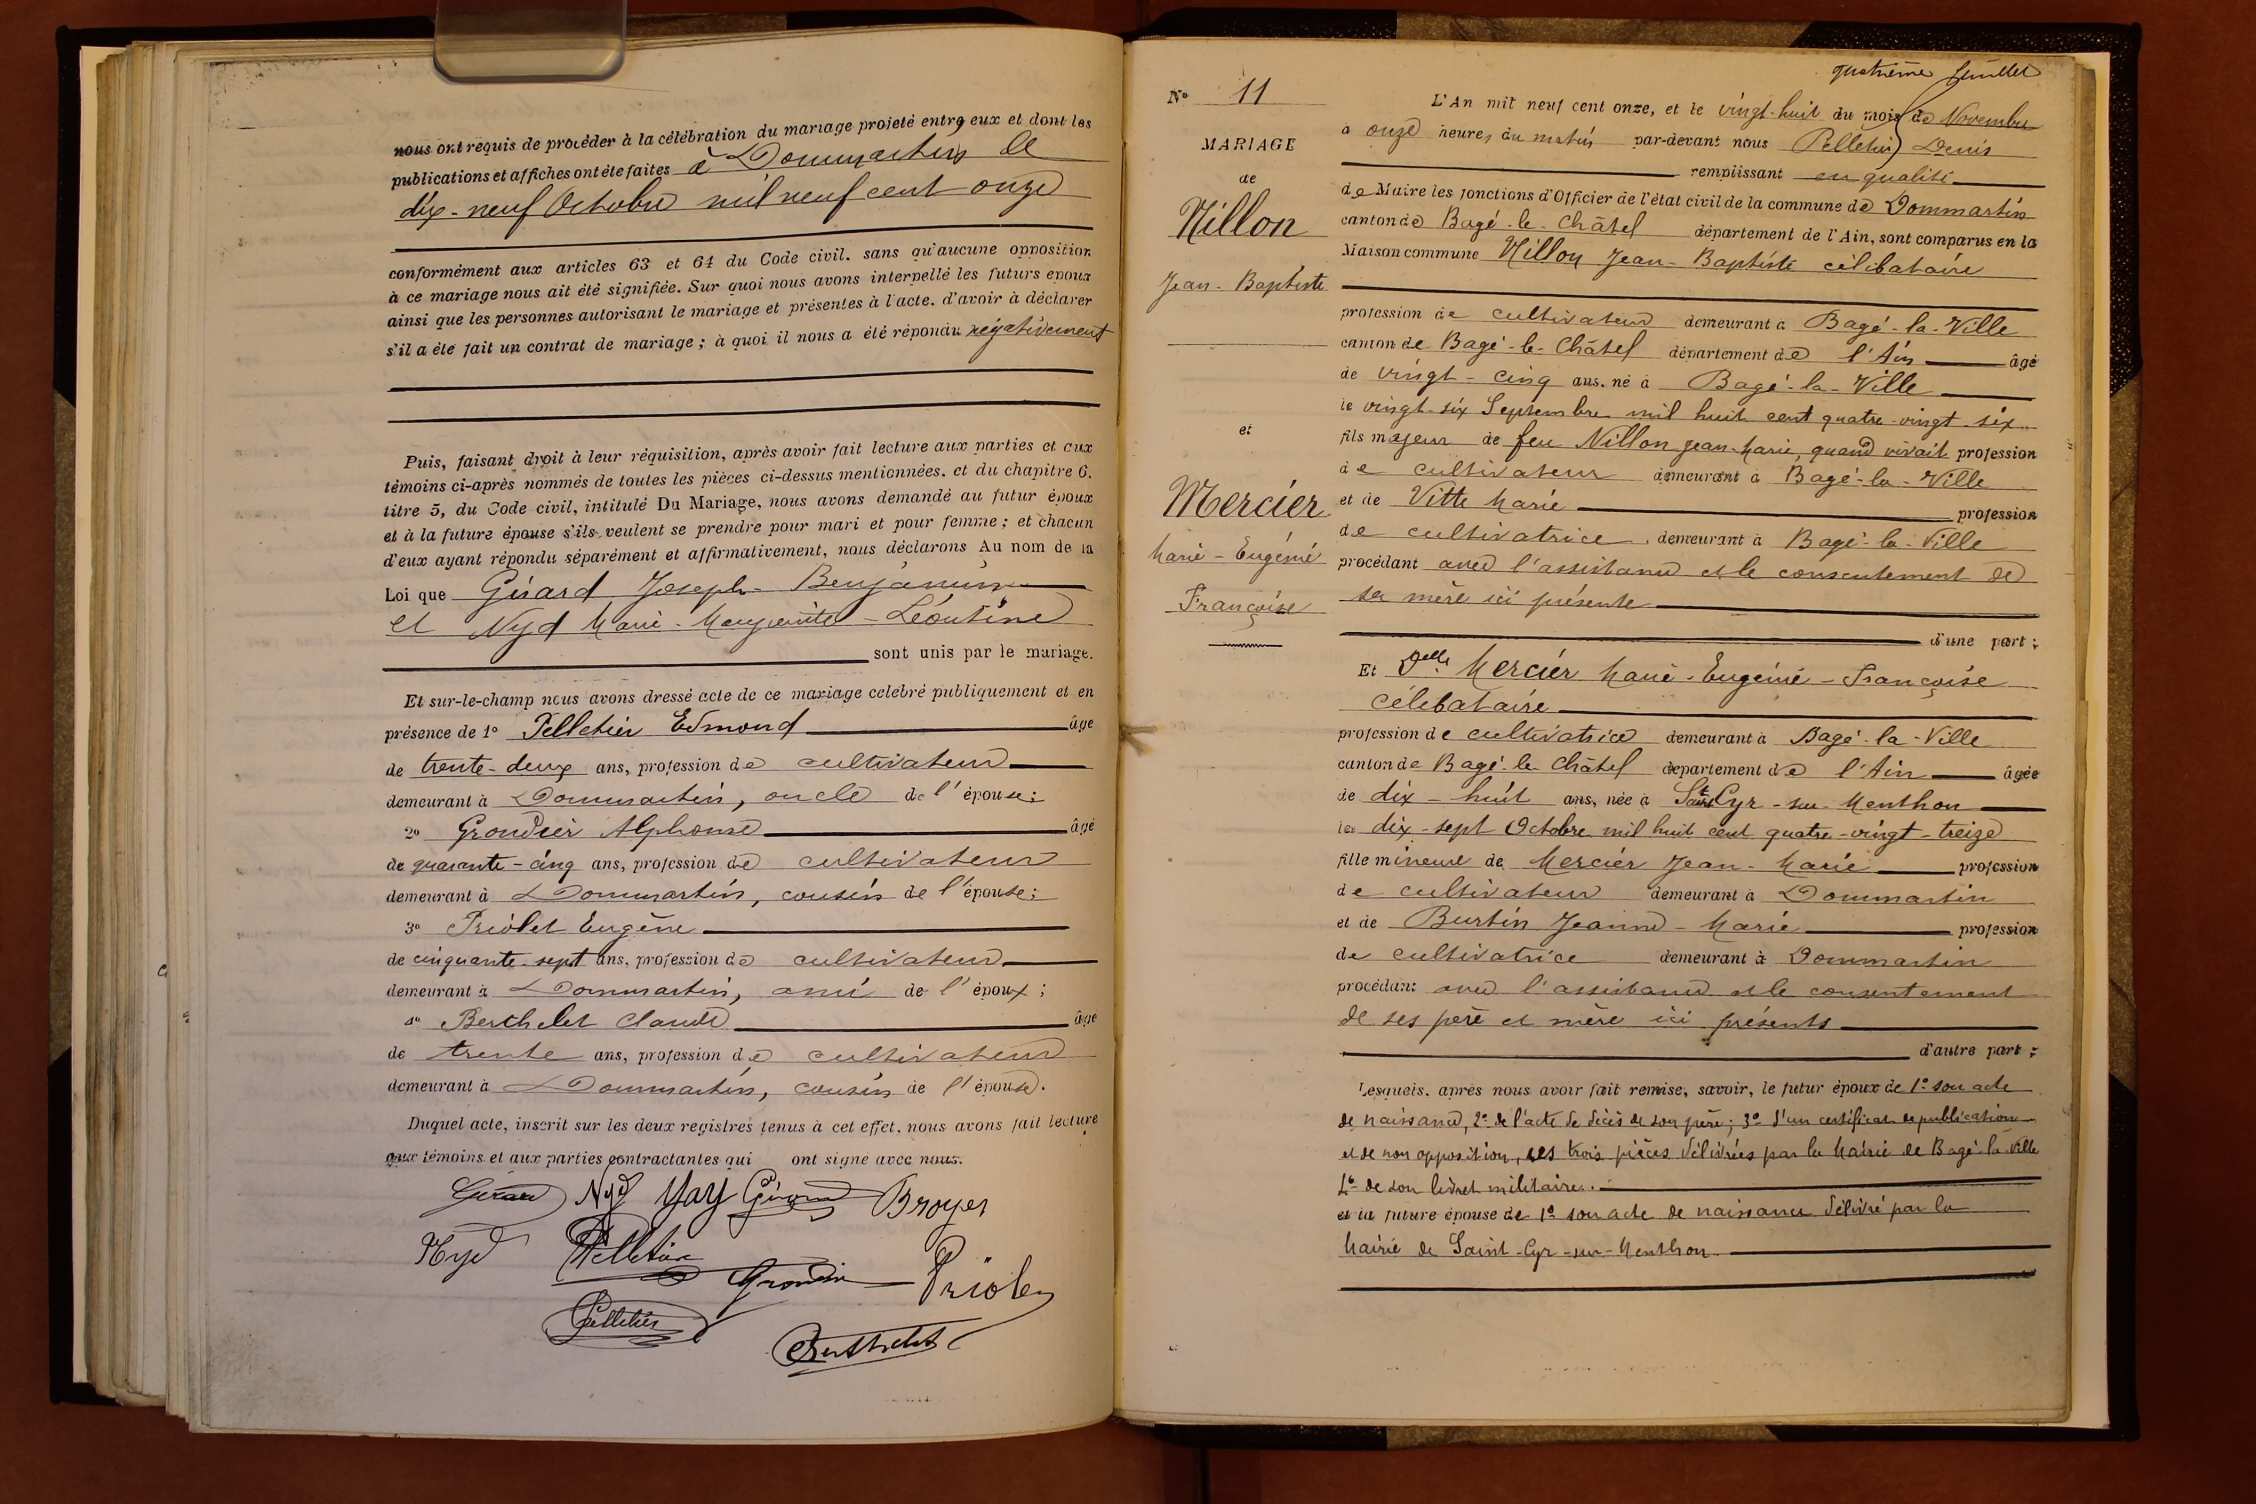 nous ont requis de procéder à la célébration du mariage projeté entre eux et dont les
publications et affiches ont été faites à Dommartin le
dix-neuf Octobre mil neuf cent onze
conformément aux articles 63 et 64 du Code civil. sans qu'aucune opposition
à ce mariage nous ait été signifiée. Sur quoi nous avons interpellé les futurs époux
ainsi que les personnes autorisant le mariage et présentes à l'acte. d'avoir à déclarer
s'il a été fait un contrat de mariage ; à quoi il nous a été répondu négativement
Puis, faisant droit à leur réquisition, après avoir fait lecture aux parties et aux
témoins ci-après nommés de toutes les pièces ci-dessus mentionnées. et du chapitre 6.
titre 5, du Code civil, intitulé Du Mariage, nous avons demandé au futur époux
et à la future épouse s'ils veulent se prendre pour mari et pour femme ; et chacun
d'eux ayant répondu séparément et affirmativement, nous déclarons Au nom de la
Loi que Girard Joseph-Benjamin
et Nyd Marie-Marguerite-Léontine
sont unis par le mariage.
Et sur-le-champ nous avons dressé acte de ce mariage célébré publiquement et en
présence de 1° Pelletier Edmond âgé
de trente-deux ans, profession de cultivateur
demeurant à Dommartin, oncle de l'épouse ;
2° Grondier Alphonse âgé
de quarante-cinq ans, profession de cultivateur
demeurant à Dommartin, cousin de l'épouse ;
3° Priolet Eugène
de cinquante-sept ans, profession de cultivateur
demeurant à Dommartin, ami de l'époux ;
4° Berthelet Claude âgé
de trente ans, profession de cultivateur
demeurant à Dommartin, cousin de l'épouse.
Duquel acte, inscrit sur les deux registres tenus à cet effet, nous avons fait lecture
aux témoins et aux parties contractantes qui ont signé avec nous.
Girard Nyd Yay Girard Broyer
Nyd Pelletier Grondier Priolet
Pelletier Berthelet
quatrième feuillet
N° 11
MARIAGE
de
Nillon
Jean-Baptiste
et
Mercier
Marie-Eugénie
Françoise
L'An mil neuf cent onze, et le vingt-huit du mois de Novembre
à onze heures du matin par-devant nous Pelletier Denis
remplissant en qualité
de Maire les fonctions d'Officier de l'état civil de la commune de Dommartin
canton de Bagé-le-Châtel département de l'Ain, sont comparus en la
Maison commune Nillon Jean-Baptiste célibataire
profession de cultivateur demeurant à Bagé-la-Ville
canton de Bagé-le-Châtel département de l'Ain âgé
de vingt-cinq ans. né à Bagé-la-Ville
le vingt-six Septembre mil huit cent quatre-vingt-six
fils majeur de feu Nillon Jean-Marie, quand vivait profession
de cultivateur demeurant à Bagé-la-Ville
et de Vitte Marie profession
de cultivatrice demeurant à Bagé-la-Ville
procédant avec l'assistance et le consentement de
sa mère ici présente
d'une part ;
Et Delle Mercier Marie-Eugénie-Françoise
célibataire
profession de cultivatrice demeurant à Bagé-la-Ville
canton de Bagé-le-Châtel département de l'Ain âgée
de dix-huit ans, née à St Cyr-sur-Menthon
le dix-sept Octobre mil huit cent quatre-vingt-treize
fille mineure de Mercier Jean-Marie profession
de cultivateur demeurant à Dommartin
et de Burtin Jeanne-Marie profession
de cultivatrice demeurant à Dommartin
procédant avec l'assistance et le consentement
de ses père et mère ici présents
d'autre part ;
Lesquels, après nous avoir fait remise, savoir, le futur époux de 1° son acte
de naissance, 2° de l'acte de décès de son père ; 3° d'un certificat de publication
et de non opposition, ces trois pièces délivrées par la Mairie de Bagé-la-Ville
4° de son livret militaire.
et la future épouse de 1° son acte de naissance délivré par la
Mairie de Saint-Cyr-sur-Menthon